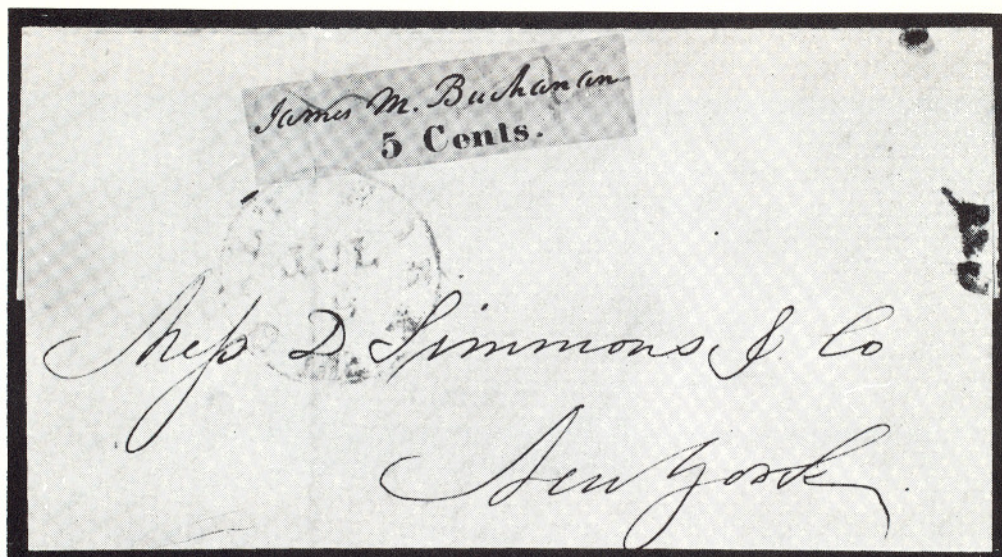 James M. Buchanan
5 Cents.
JUL
Mess D. Simmons & Co
New York.